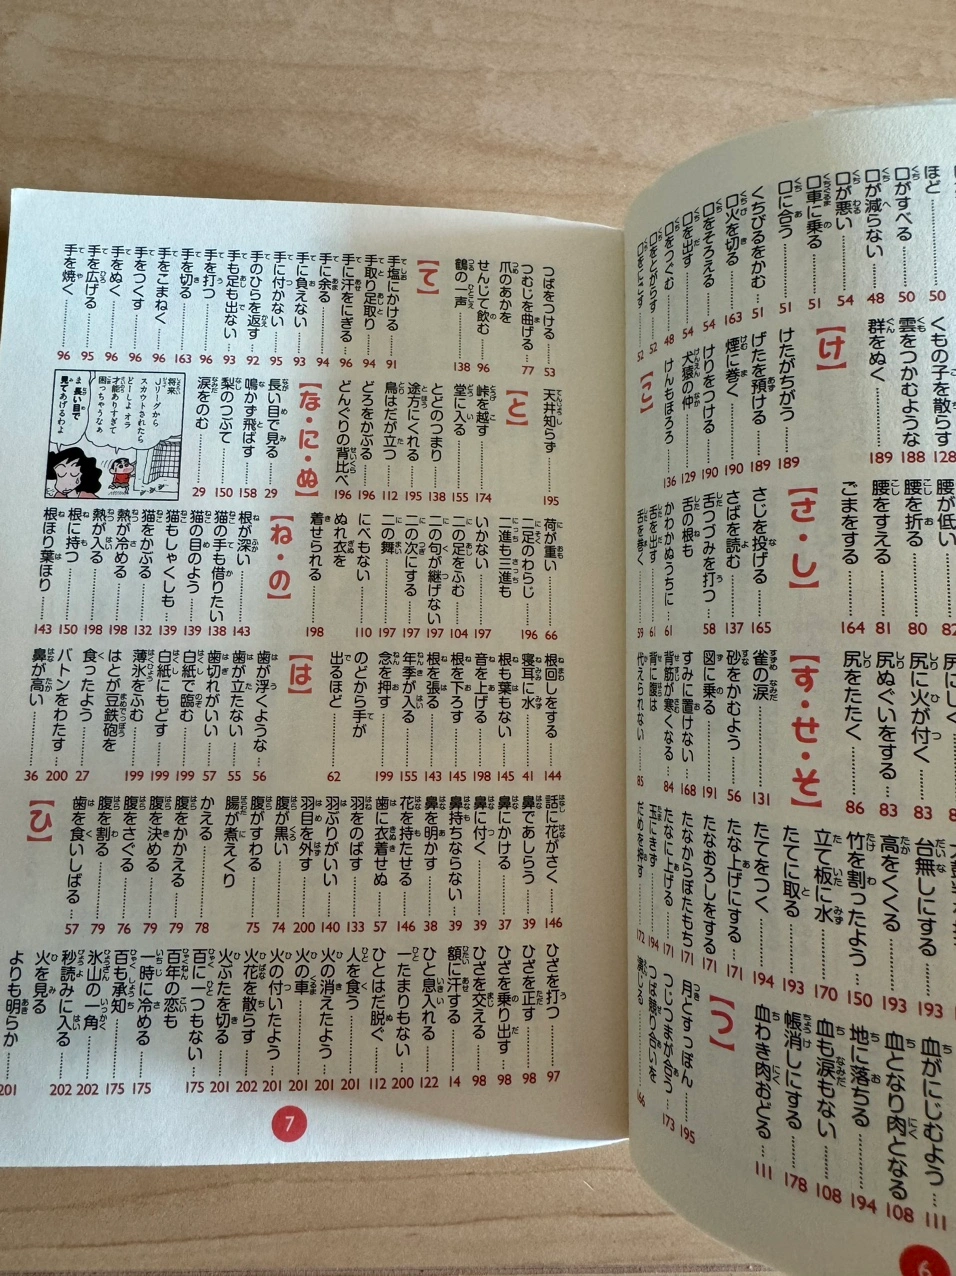 ほど……50
口がすべる……50
口が減らない……48
口が悪い……54
口車に乗る……51
口に合う……51
くちびるをかむ……51
口火を切る……163
口をそろえる……54
口を出す……54
口をつぐむ……48
口をとがらす……52
くもの子を散らす……128
雲をつかむような……188
群をぬく……189
【け】
けたがちがう……189
げたを預ける……189
煙に巻く……190
けりをつける……190
犬猿の仲……129
けんもほろろ……136
【こ】
腰が低い……82
腰を折る……80
腰をすえる……81
ごまをする……164
【さ・し】
さじを投げる……165
さばを読む……137
舌つづみを打つ……58
舌の根も
かわかぬうちに……61
舌を出す……61
舌を巻く……59
尻に火が付く……83
尻ぬぐいをする……83
尻をたたく……86
【す・せ・そ】
雀の涙……131
砂をかむよう……56
図に乗る……191
すみに置けない……168
背筋が寒くなる……84
背に腹は
代えられない……85
台無しにする……193
高をくくる……193
竹を割ったよう……150
立て板に水……170
たてに取る……193
たてをつく……194
たな上げにする……171
たなおろしをする……171
たなからぼたもち……171
たなに上げる……171
玉にきず……194
だめを押す……172
血がにじむよう……111
血となり肉となる……108
地に落ちる……194
血も涙もない……108
帳消しにする……178
血わき肉おどる……111
【つ】
月とすっぽん……195
つじつまが合う……173
つば競り合いを
演じる……166
6
つばをつける……53
つむじを曲げる……77
爪のあかを
せんじて飲む……96
鶴の一声……138
【て】
手塩にかける……91
手取り足取り……94
手に汗をにぎる……96
手に余る……94
手に負えない……93
手に付かない……95
手のひらを返す……92
手も足も出ない……93
手を打つ……96
手を切る……163
手をこまねく……96
手をつくす……96
手をぬく……96
手を広げる……95
手を焼く……96
天井知らず……195
【と】
峠を越す……174
堂に入る……155
とどのつまり……138
途方にくれる……195
鳥はだが立つ……112
どろをかぶる……195
どんぐりの背比べ……196
【な・に・ぬ】
長い目で見る……29
鳴かず飛ばず……158
梨のつぶて……150
涙をのむ……29
将来
Jリーグから
スカウトされたら
どーしよォ♡
才能ありすぎて
困っちゃうなぁ
ま、長い目で
見てあげるわよ
荷が重い……66
二足のわらじ……196
二進も三進も
いかない……197
二の足をふむ……104
二の句が継げない……197
二の次にする……197
二の舞……197
にべもない……110
ぬれ衣を
着せられる……198
【ね・の】
根が深い……143
猫の手も借りたい……138
猫の目のよう……139
猫もしゃくしも……139
猫をかぶる……132
熱が冷める……198
熱が入る……198
根に持つ……150
根ほり葉ほり……143
根回しをする……144
寝耳に水……41
根も葉もない……145
音を上げる……198
根を下ろす……145
根を張る……143
年季が入る……155
念を押す……199
のどから手が
出るほど……62
【は】
歯が浮くような……56
歯が立たない……55
歯切れがいい……57
白紙で臨む……199
白紙にもどす……199
薄氷をふむ……199
はとが豆鉄砲を
食ったよう……27
バトンをわたす……200
鼻が高い……36
話に花がさく……146
鼻であしらう……39
鼻にかける……37
鼻に付く……39
鼻持ちならない……39
鼻を明かす……38
花を持たせる……146
歯に衣着せぬ……57
羽をのばす……133
羽ぶりがいい……140
羽目を外す……200
腹が黒い……74
腹がすわる……75
腸が煮えくり
かえる……78
腹をかかえる……79
腹を決める……79
腹をさぐる……76
腹を割る……79
歯を食いしばる……57
【ひ】
ひざを打つ……97
ひざを正す……98
ひざを乗り出す……98
ひざを交える……98
額に汗する……14
ひと息入れる……122
一たまりもない……200
ひとはだ脱ぐ……112
人を食う……201
火の消えたよう……201
火の車……201
火の付いたよう……201
火花を散らす……202
火ぶたを切る……201
百に一つもない……175
百年の恋も
一時に冷める……175
百も承知……175
氷山の一角……202
秒読みに入る……202
火を見る
よりも明らか……201
7